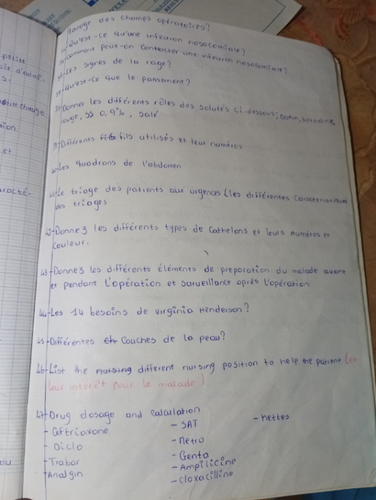 des champs opératoires?
Qu'est-ce qu'une infection nosocomiale?
comment peut-on contracter une infection nosocomiale?
Les signes de la rage?
Qu'est-ce que le pansement?
Donner les différents rôles des solutés ci-dessous:
rouge, SS 0,9%, salé
Différents fils utilisés et leur numéros
Les quadrons de l'abdomen
Le triage des patients aux urgences (les différentes caractéristiques
des triages
42-Donnez les différents types de cathelons et leurs numéros et
Couleur.
43-Donnez les différents éléments de preparation du malade avant
et pendant l'opération et surveillance après l'opération
44-Les 14 besoins de virginia Henderson?
45-Différentes Couches de la peau?
46-List the nursing different nursing position to help the patient (
leur interêt pour le malade)
47-Drug dosage and calculation
- Ceftriaxone - SAT - Mettes
- Diclo - Metro
- Trabar - Genta
- Analgin - Ampilicine
- Cloxacilline